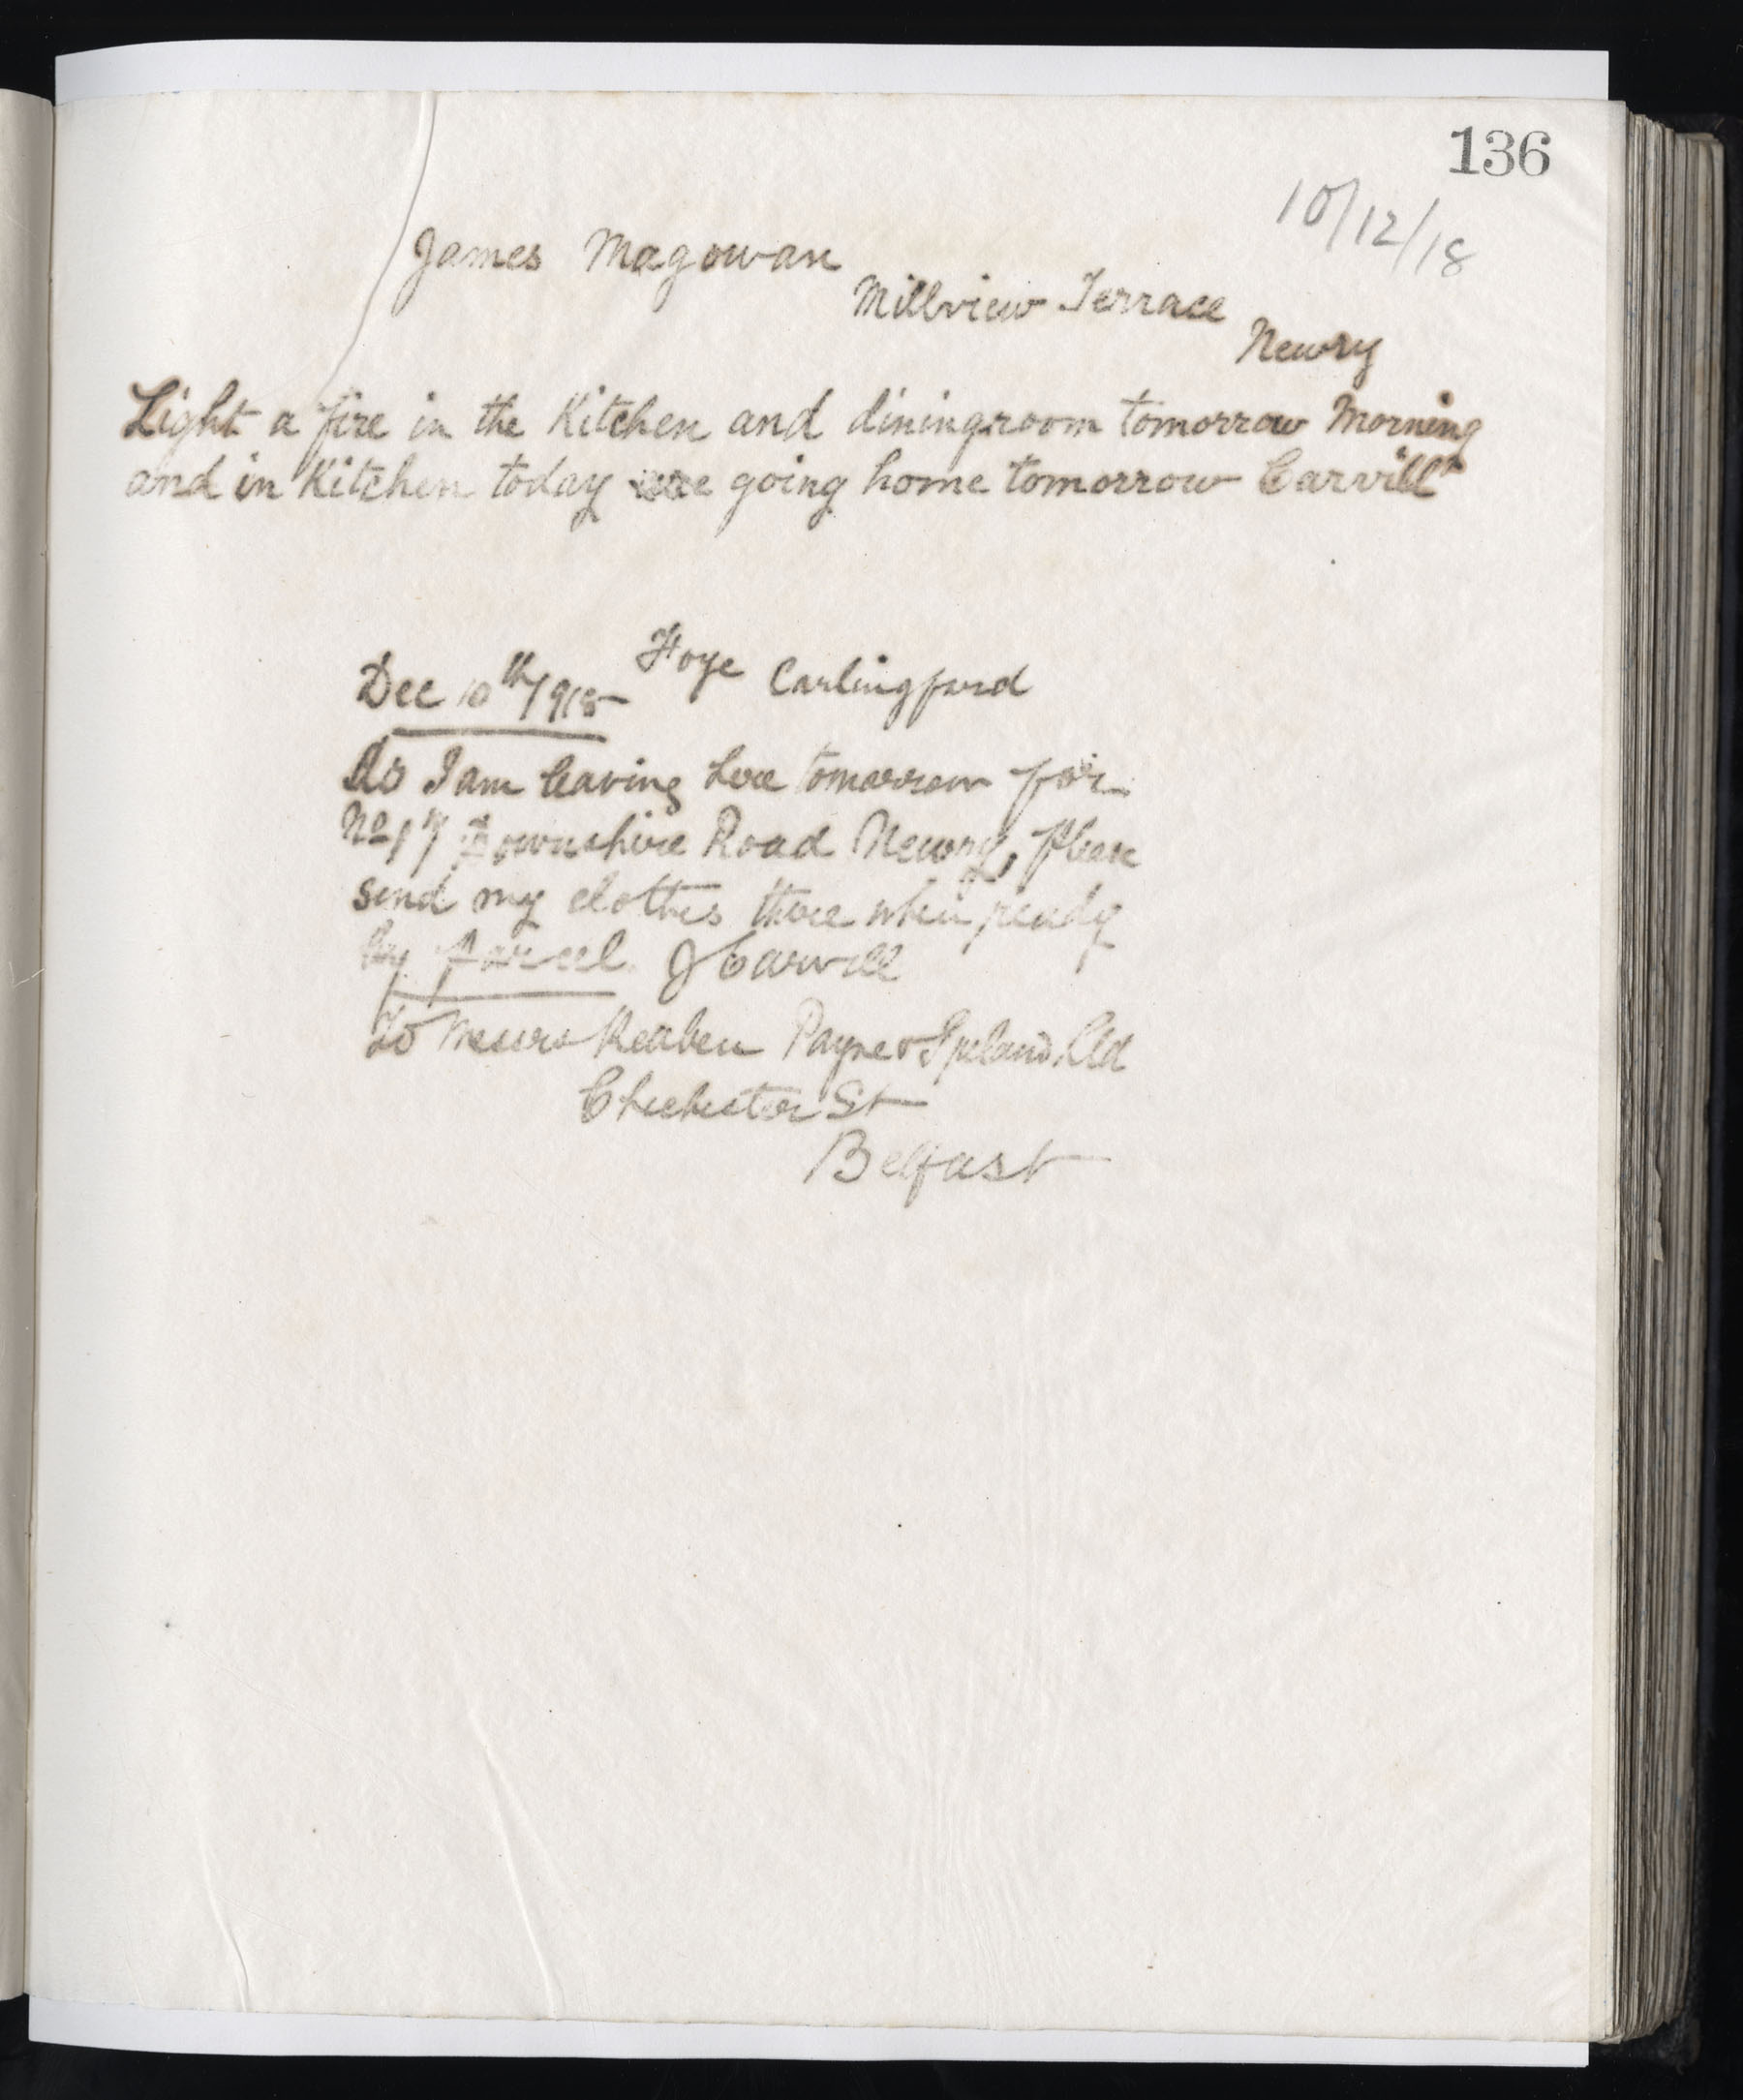 136
10/12/18
James Magowan
Millview Terrace
Newry
Light a fire in the Kitchen and diningroom tomorrow Morning
and in Kitchen today going home tomorrow Carvill
Dec 10th/918 Hoye Carlingford
As I am leaving here tomorrow for
No 17 Downshire Road Newry, please
send my clothes there when ready
by parcel. J Carvill
To Messrs Reuben Payne & Ltd
Chichester St
Belfast